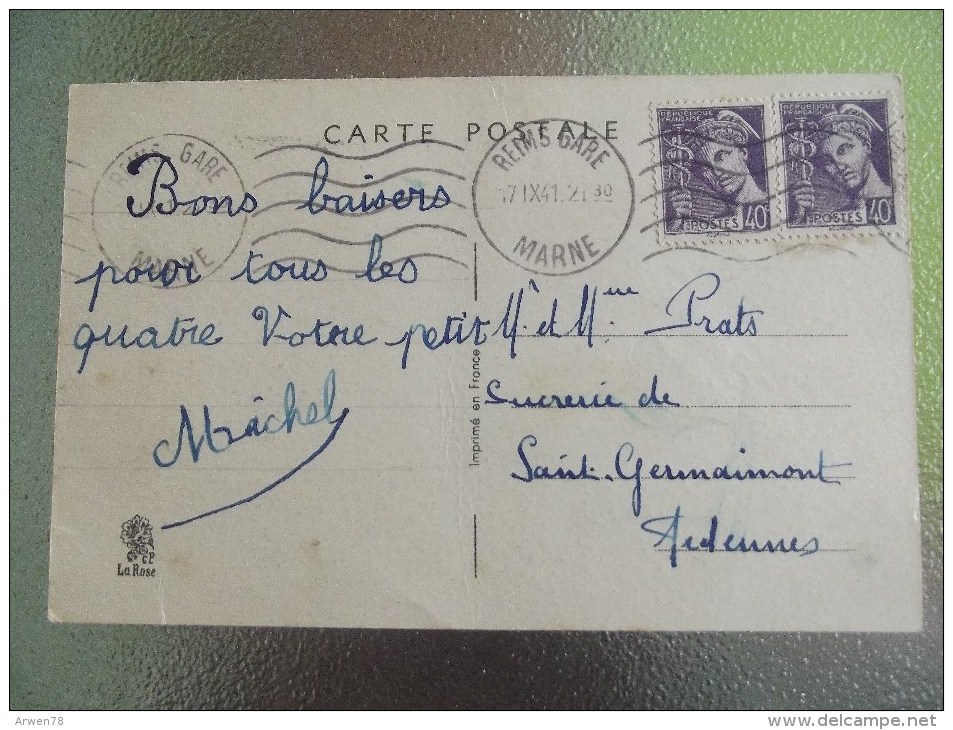 CARTE POSTALE
REIMS GARE
MARNE
REIMS GARE
17 IX 41. 21 30
MARNE
RÉPUBLIQUE
FRANÇAISE
POSTES 40
RÉPUBLIQUE
FRANÇAISE
POSTES 40
Bons baisers
pour tous les
quatre Votre petit
Michel
Mr et Mme Prats
Sucrerie de
Saint-Germaimont
Ardennes
Imprimé en France
CP
La Rose
Arwen78
www.delcampe.net